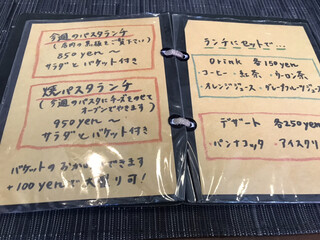 今週のパスタランチ
(店内の黒板をご覧下さい)
850yen〜
サラダとバケット付き
焼パスタランチ
(今週のパスタにチーズをのせて
オーブンでやきます)
950yen〜
サラダとバケット付き
バケットのおかわりできます
+100yenで大盛り可!
ランチにセットで…
Drink 各150yen
・コーヒー ・紅茶 ・ウーロン茶
・オレンジジュース ・グレープフルーツジュース
デザート 各250yen
・パンナコッタ ・アイスクリ